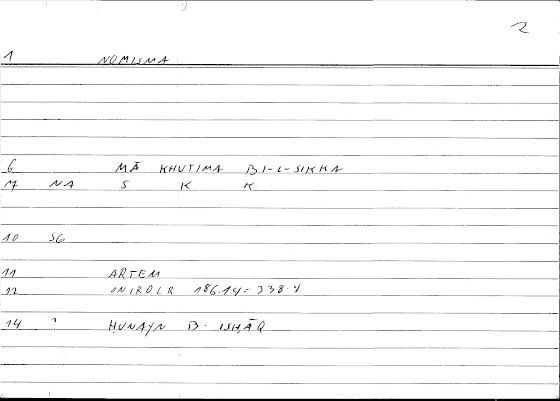 2
1 NOMISMA
6 MĀ KHUTIMA BI-L-SIKKA
M NA S K K
10 SG
11 ARTEM
12 ONIROLR 186.14 = 338.4
14 ? ḤUNAYN B. ISḤĀQ